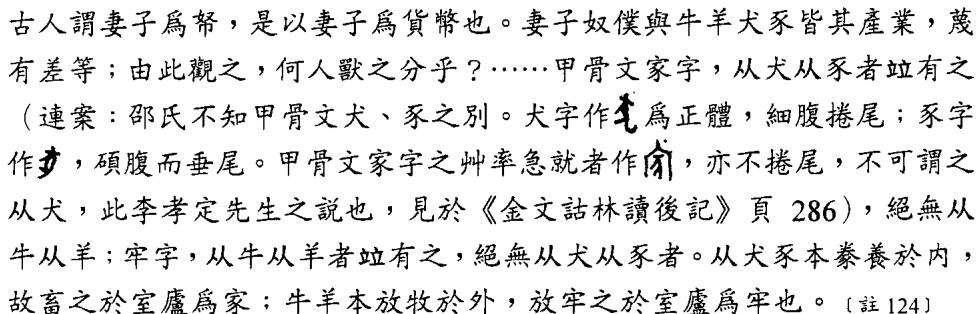 古人謂妻子爲帑,是以妻子爲貨幣也。妻子奴僕與牛羊犬豕皆其產業,蔑
有差等;由此觀之,何人獸之分乎?⋯⋯甲骨文家字,从犬从豕者竝有之
(連案:邵氏不知甲骨文犬、豕之別。犬字作爲正體,細腹捲尾;豕字
作,碩腹而垂尾。甲骨文家字之艸率急就者作,亦不捲尾,不可謂之
从犬,此李孝定先生之說也,見於《金文詁林讀後記》頁 286),絕無从
牛从羊;牢字,从牛从羊者竝有之,絕無从犬从豕者。从犬豕本豢養於內,
故畜之於室廬爲家;牛羊本放牧於外,放牢之於室廬爲牢也。〔註 124〕